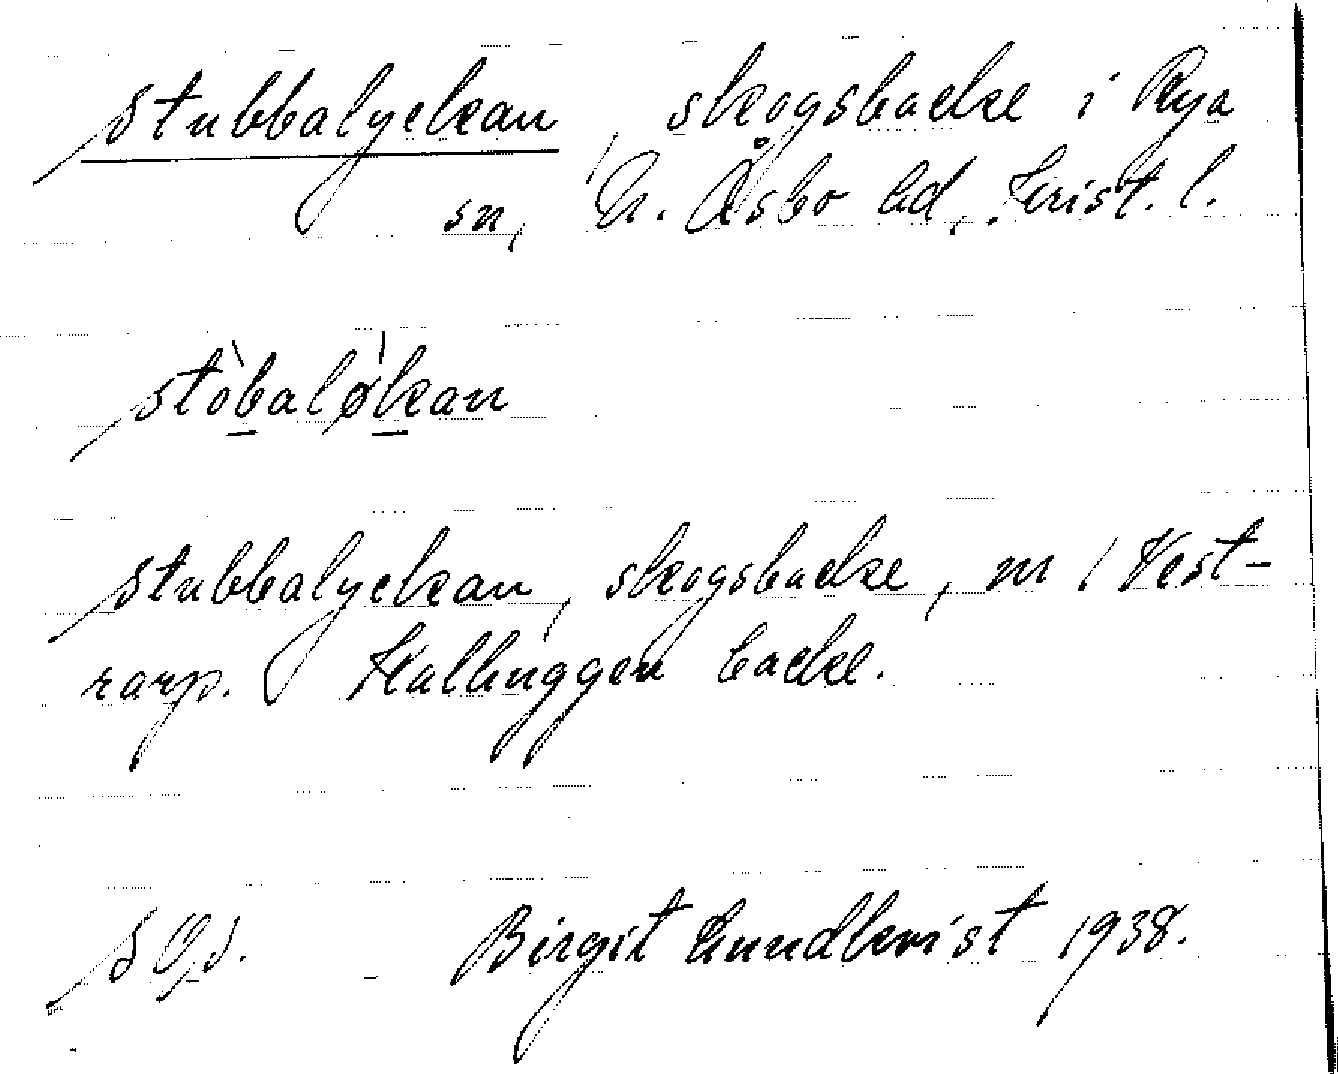 Stubbalyckan, skogsbacke i Rya
sn, N. Åsbo hd, Krist. l.
stòbalø̀kan
Stubbalyckan, skogsbacke, m / Vest-
rarp. Hallhuggen backe.
Birgit Lundkvist 1938.